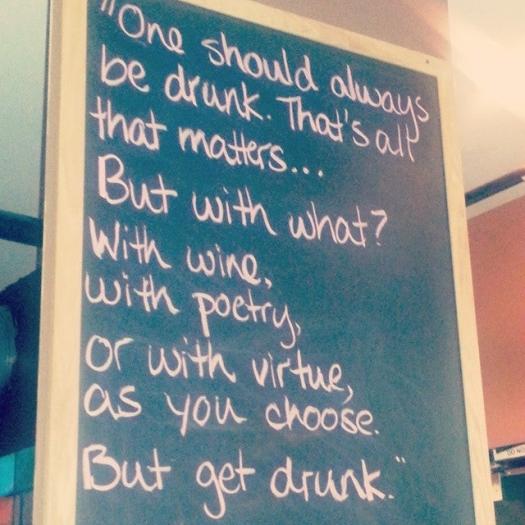 "One should always
be drunk. That's all
that matters...
But with what?
With wine,
with poetry,
or with virtue,
as you choose.
But get drunk."